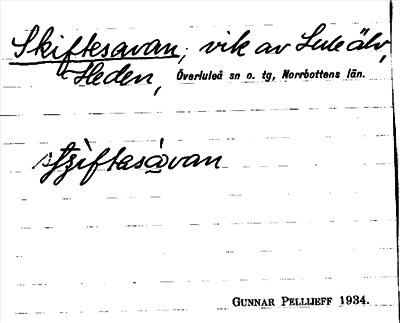 Skiftesavan, vik av Lule älv,
Heden, Överluleå sn o. tg, Norrbottens län.
GUNNAR PELLIJEFF 1934.